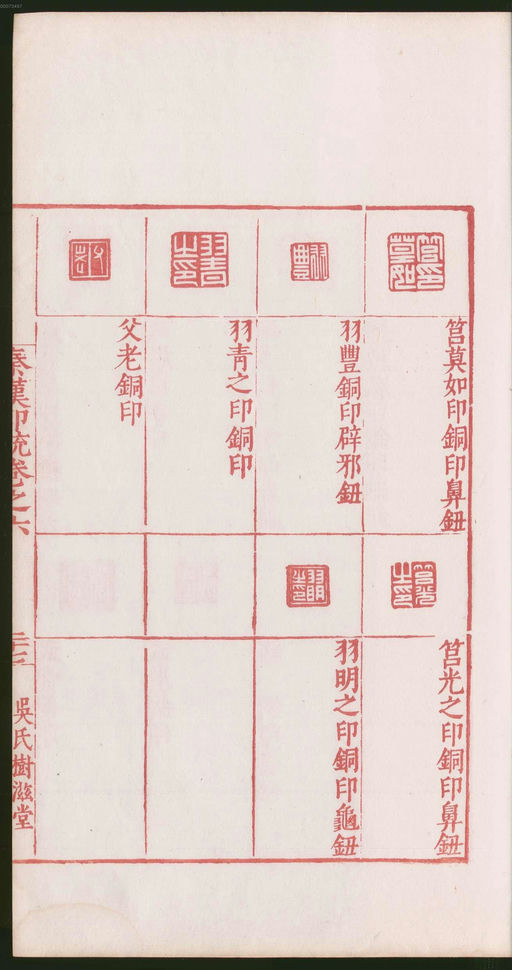 筥莫如印銅印鼻鈕
羽豐銅印辟邪鈕
羽青之印銅印
父老銅印
筥光之印銅印鼻鈕
羽明之印銅印龜鈕
秦漢印統卷之六
吳氏樹滋堂
00073497